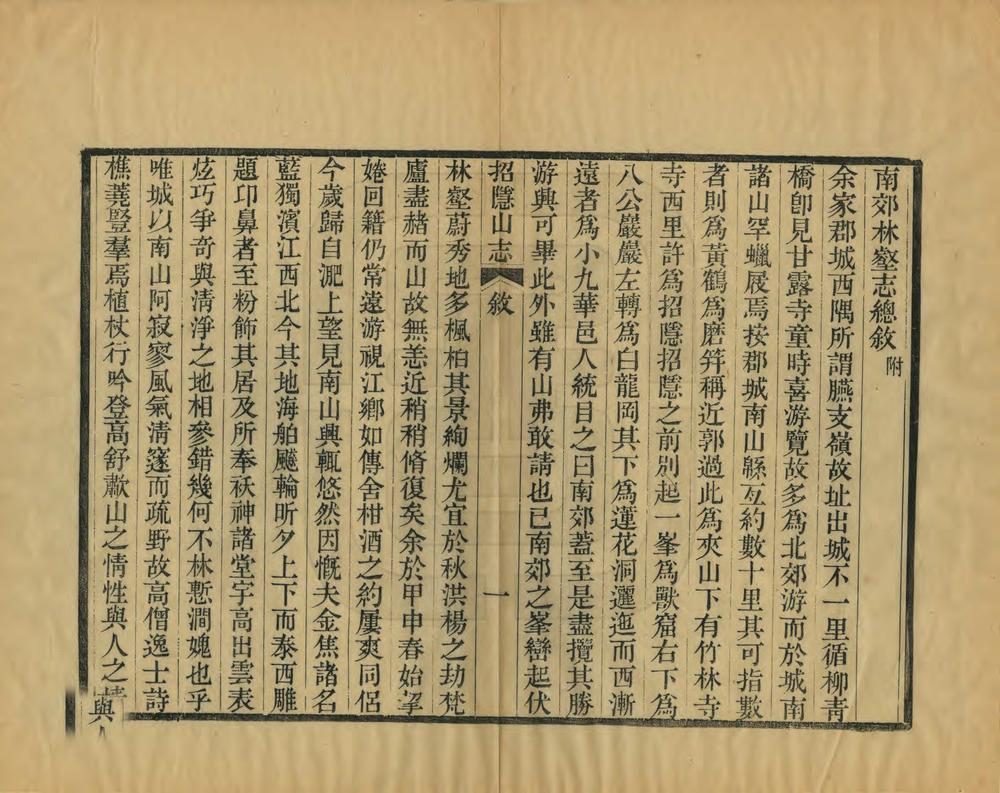 南郊林壑志總敘 附
余家郡城西隅所謂臙支嶺故址出城不一里循柳靑
橋卽見甘露寺童時喜游覽故多爲北郊游而於城南
諸山罕蠟屐焉按郡城南山緜亙約數十里其可指數
者則爲黃鶴爲磨筓稱近郭過此爲夾山下有竹林寺
寺西里許爲招隱招隱之前別起一峯爲獸窟右下爲
八公巖巖左轉爲白龍岡其下爲蓮花洞邐迤而西漸
遠者爲小九華邑人統目之曰南郊蓋至是盡攬其勝
游興可畢此外雖有山弗敢請也已南郊之峯巒起伏
招隱山志 敘 一
林壑蔚秀地多楓柏其景絢爛尤宜於秋洪楊之劫梵
廬盡赭而山故無恙近稍稍脩復矣余於甲申春始挈
婘回籍仍常遠游視江鄕如傳舍柑酒之約屢爽同侶
今歲歸自淝上望見南山興輒悠然因慨夫金焦諸名
藍獨濱江西北今其地海舶飈輪昕夕上下而泰西雕
題卬鼻者至粉飾其居及所奉祅神諸堂宇高出雲表
炫巧爭奇與淸淨之地相參錯幾何不林慙澗媿也乎
唯城以南山阿寂寥風氣淸邃而疏野故高僧逸士詩
樵蕘豎羣焉植杖行吟登高舒歗山之情性與人之情與